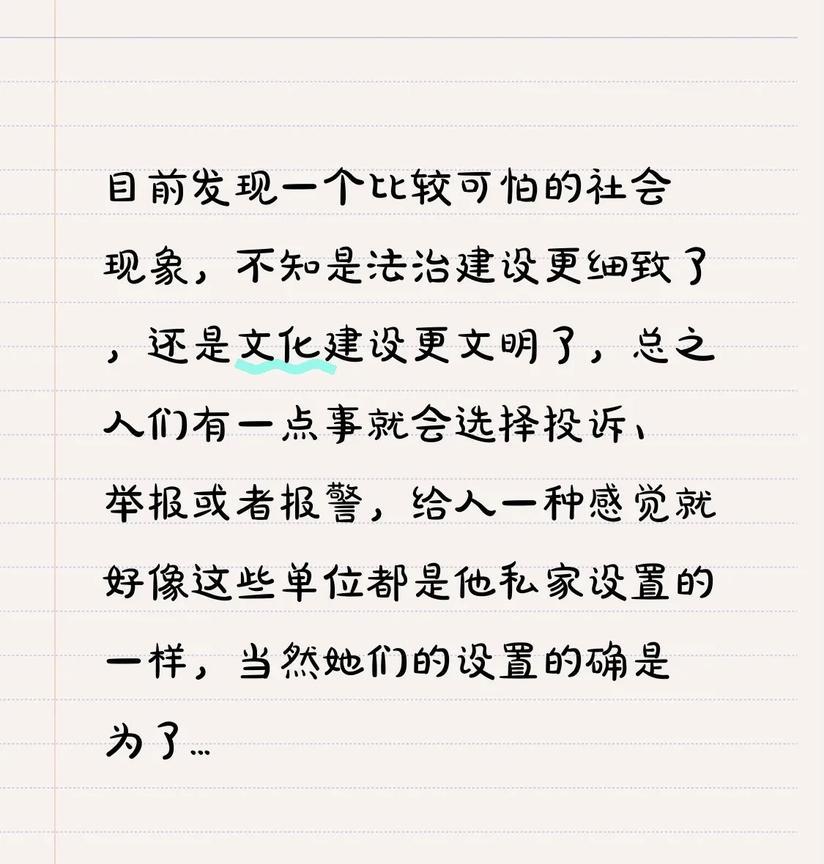 目前发现一个比较可怕的社会
现象，不知是法治建设更细致了
，还是文化建设更文明了，总之
人们有一点事就会选择投诉、
举报或者报警，给人一种感觉就
好像这些单位都是他私家设置的
一样，当然她们的设置的确是
为了…